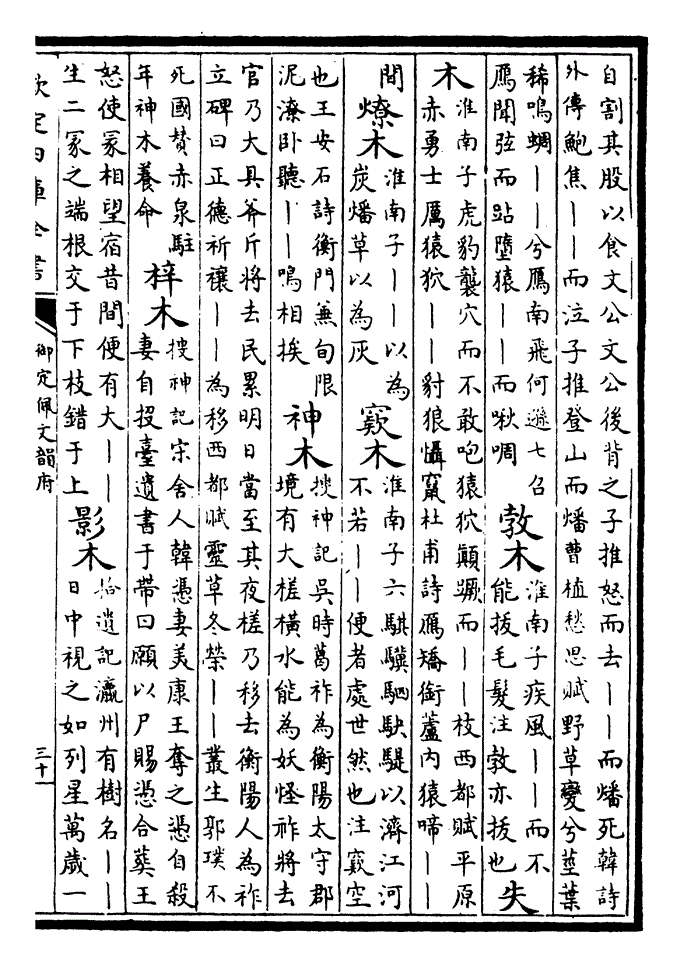 自割其股以食文公文公後背之子推怒而去——而燔死韓詩
外傳鮑焦——而泣子推登山而燔曹植愁思賦野草變兮莖葉
稀鳴蜩——兮鴈南飛何遜七召
鴈聞弦而跕墮猿——而啾啁
㪍木
淮南子疾風——而不
能拔毛髮注㪍亦拔也
失
木
淮南子虎豹襲穴而不敢咆猿狖顛蹶而——枝西都賦平原
赤勇士厲猿狖——豺狼懾竄杜甫詩鴈矯銜蘆内猿啼——
間
燎木
淮南子——以為
炭燔草以為灰
窾木
淮南子六騏驥駟駃騠以濟江河
不若——便者處世然也注窾空
也王安石詩衡門兼旬限
泥潦卧聽——鳴相挨
神木
搜神記吳時葛祚為衡陽太守郡
境有大槎橫水能為妖怪祚將去
官乃大具斧斤將去民累明日當至其夜槎乃移去衡陽人為祚
立碑曰正德祈禳——為移西都賦靈草冬榮——叢生郭璞不
死國贊赤泉駐
年神木養命
梓木
搜神記宋舍人韓憑妻美康王奪之憑自殺
妻自投臺遺書于帶曰願以尸賜憑合葬王
怒使冢相望宿昔間便有大——
生二冢之端根交于下枝錯于上
影木
拾遺記瀛州有樹名——
日中視之如列星萬歲一
欽定四庫全書
御定佩文韻府
三十